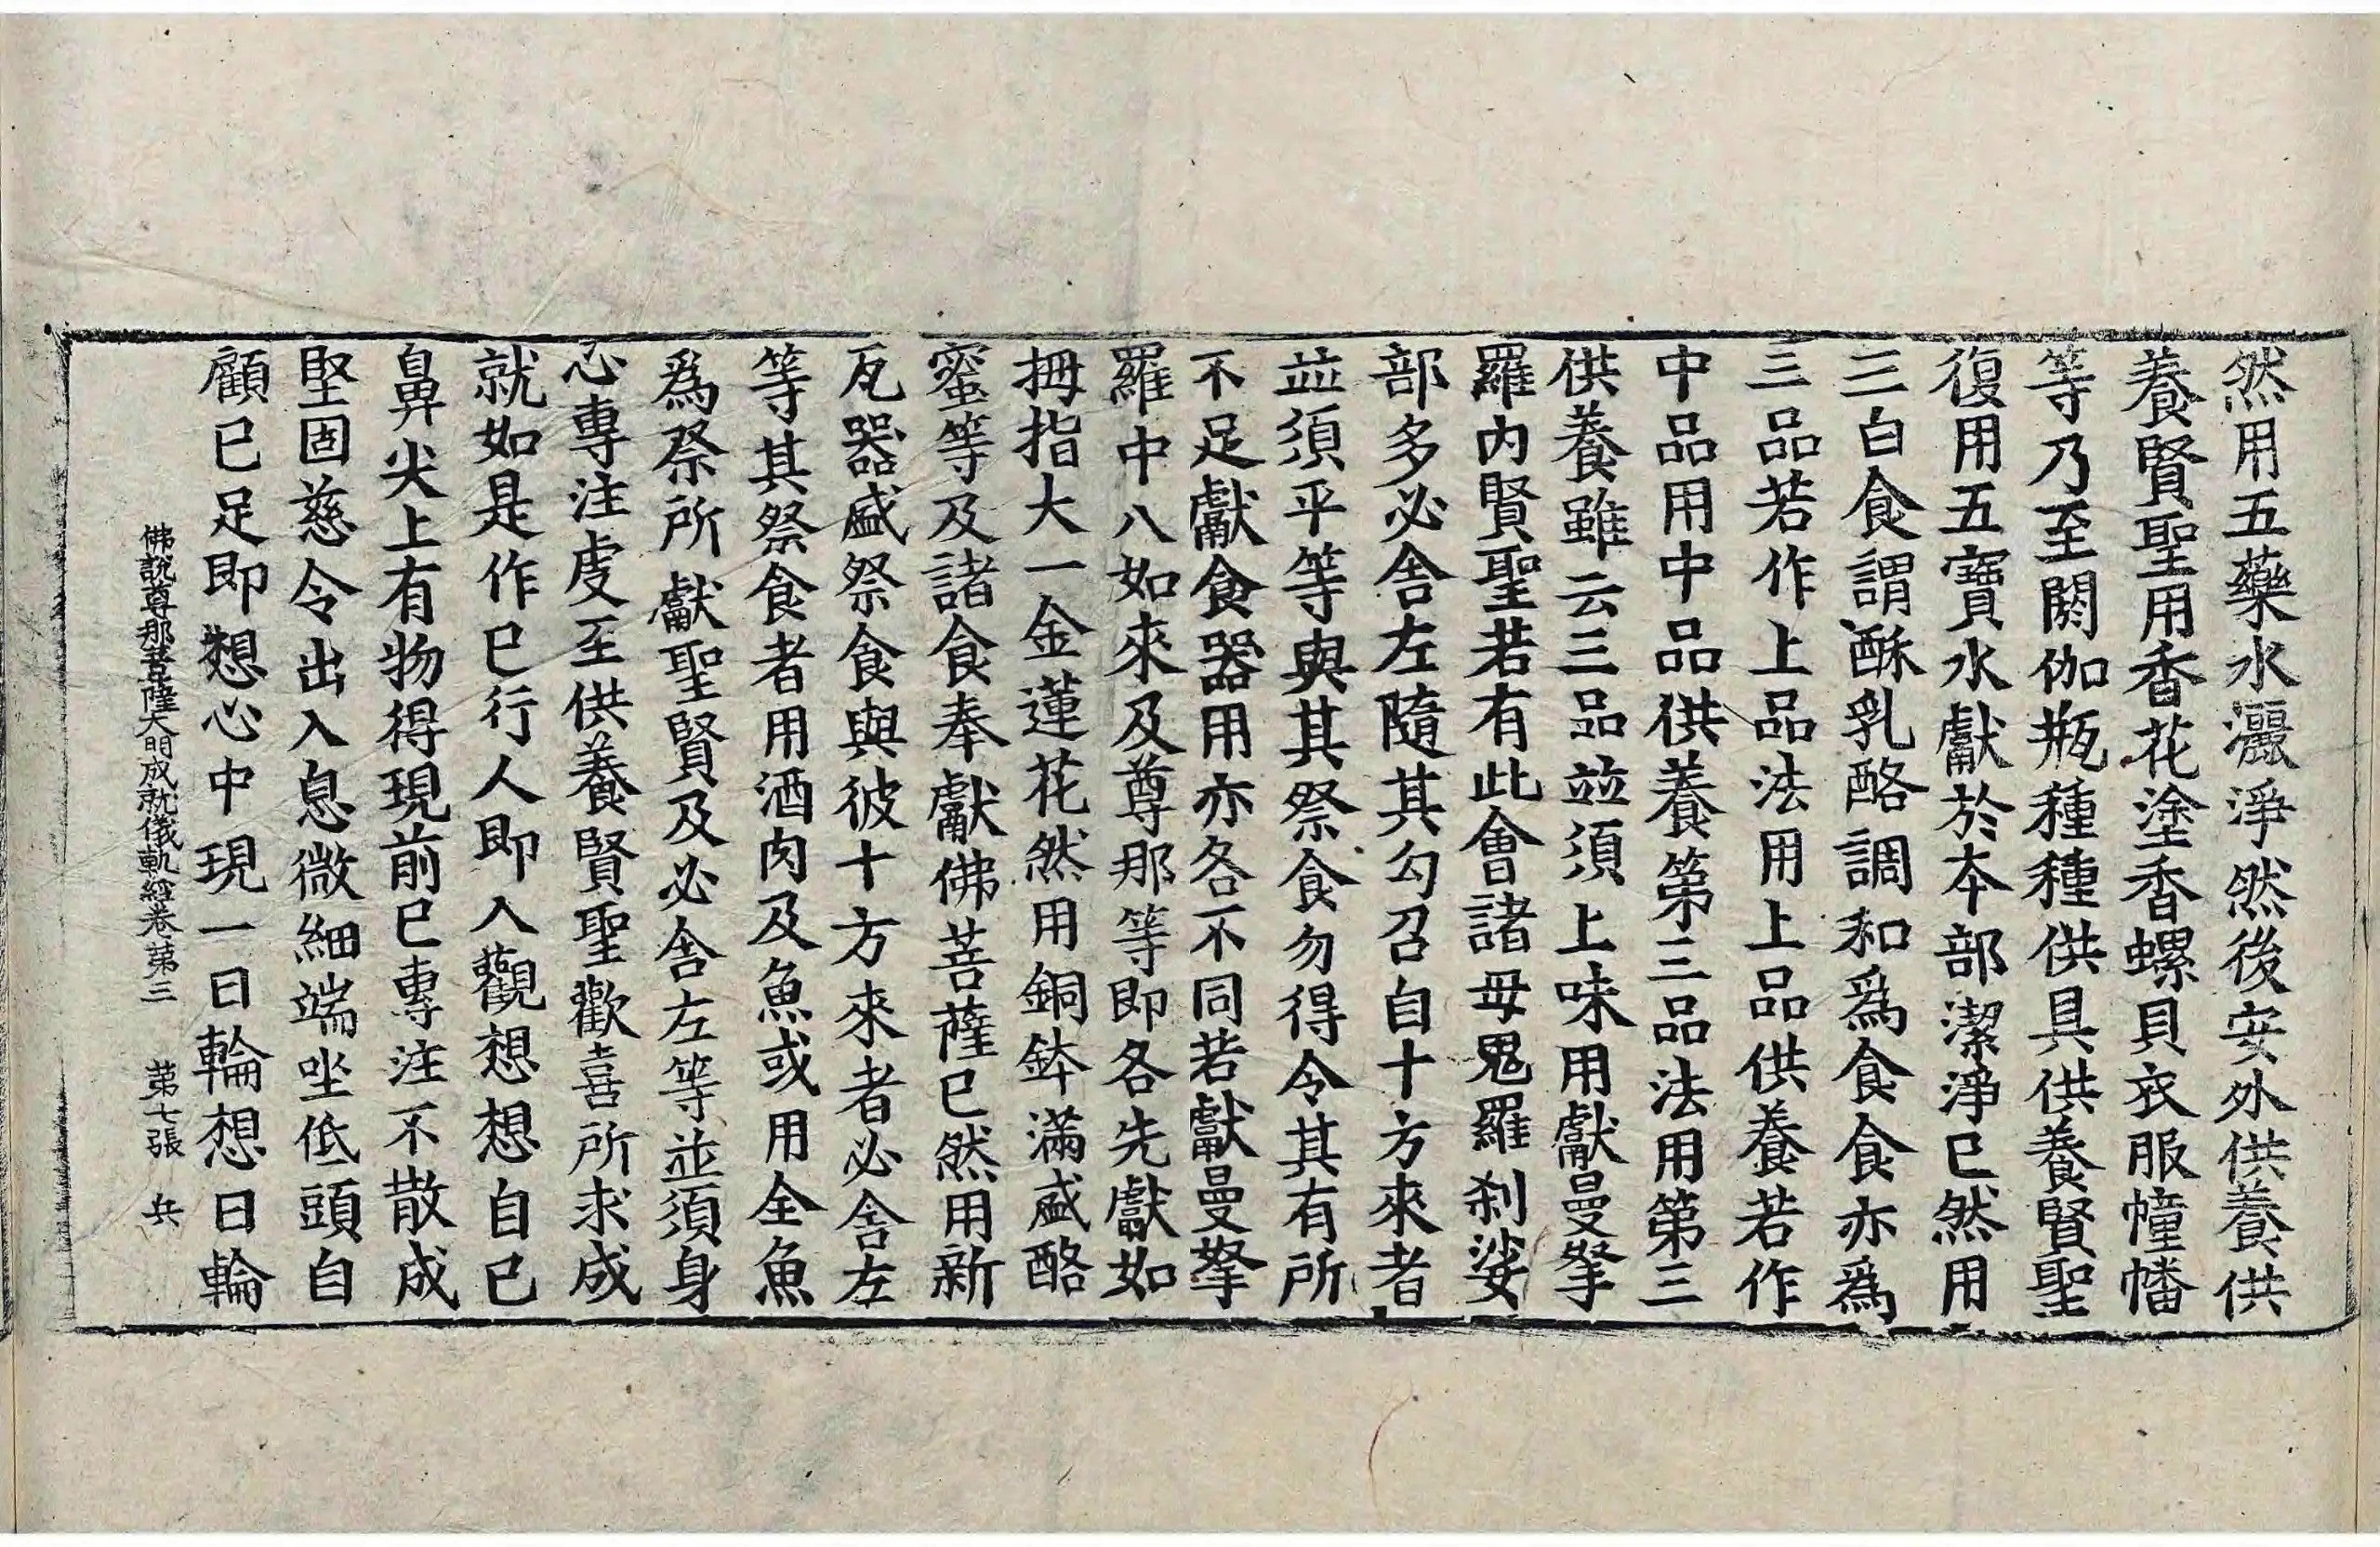 然用五藥水灑淨然後安外供養供
養賢聖用香花塗香螺貝衣服幢幡
等乃至閼伽瓶種種供具供養賢聖
復用五寶水獻於本部潔淨已然用
三白食謂酥乳酪調和爲食食亦爲
三品若作上品法用上品供養若作
中品用中品供養第三品法用第三
供養雖云三品並須上味用獻曼拏
羅內賢聖若有此會諸母鬼羅刹娑
部多必舍左隨其勾召自十方來者
並須平等與其祭食勿得令其有所
不足獻食器用亦各不同若獻曼拏
羅中八如來及尊那等即各先獻如
拇指大一金蓮花然用銅鉢滿盛酪
蜜等及諸食奉獻佛菩薩已然用新
瓦器盛祭食與彼十方來者必舍左
等其祭食者用酒肉及魚或用全魚
爲祭所獻聖賢及必舍左等並須身
心專注虔至供養賢聖歡喜所求成
就如是作已行人即入觀想想自己
鼻尖上有物得現前已專注不散成
堅固慈令出入息微細端坐低頭自
顧已足即想心中現一日輪想日輪
佛說尊那菩薩大明成就儀軌經卷第三 第七張 兵